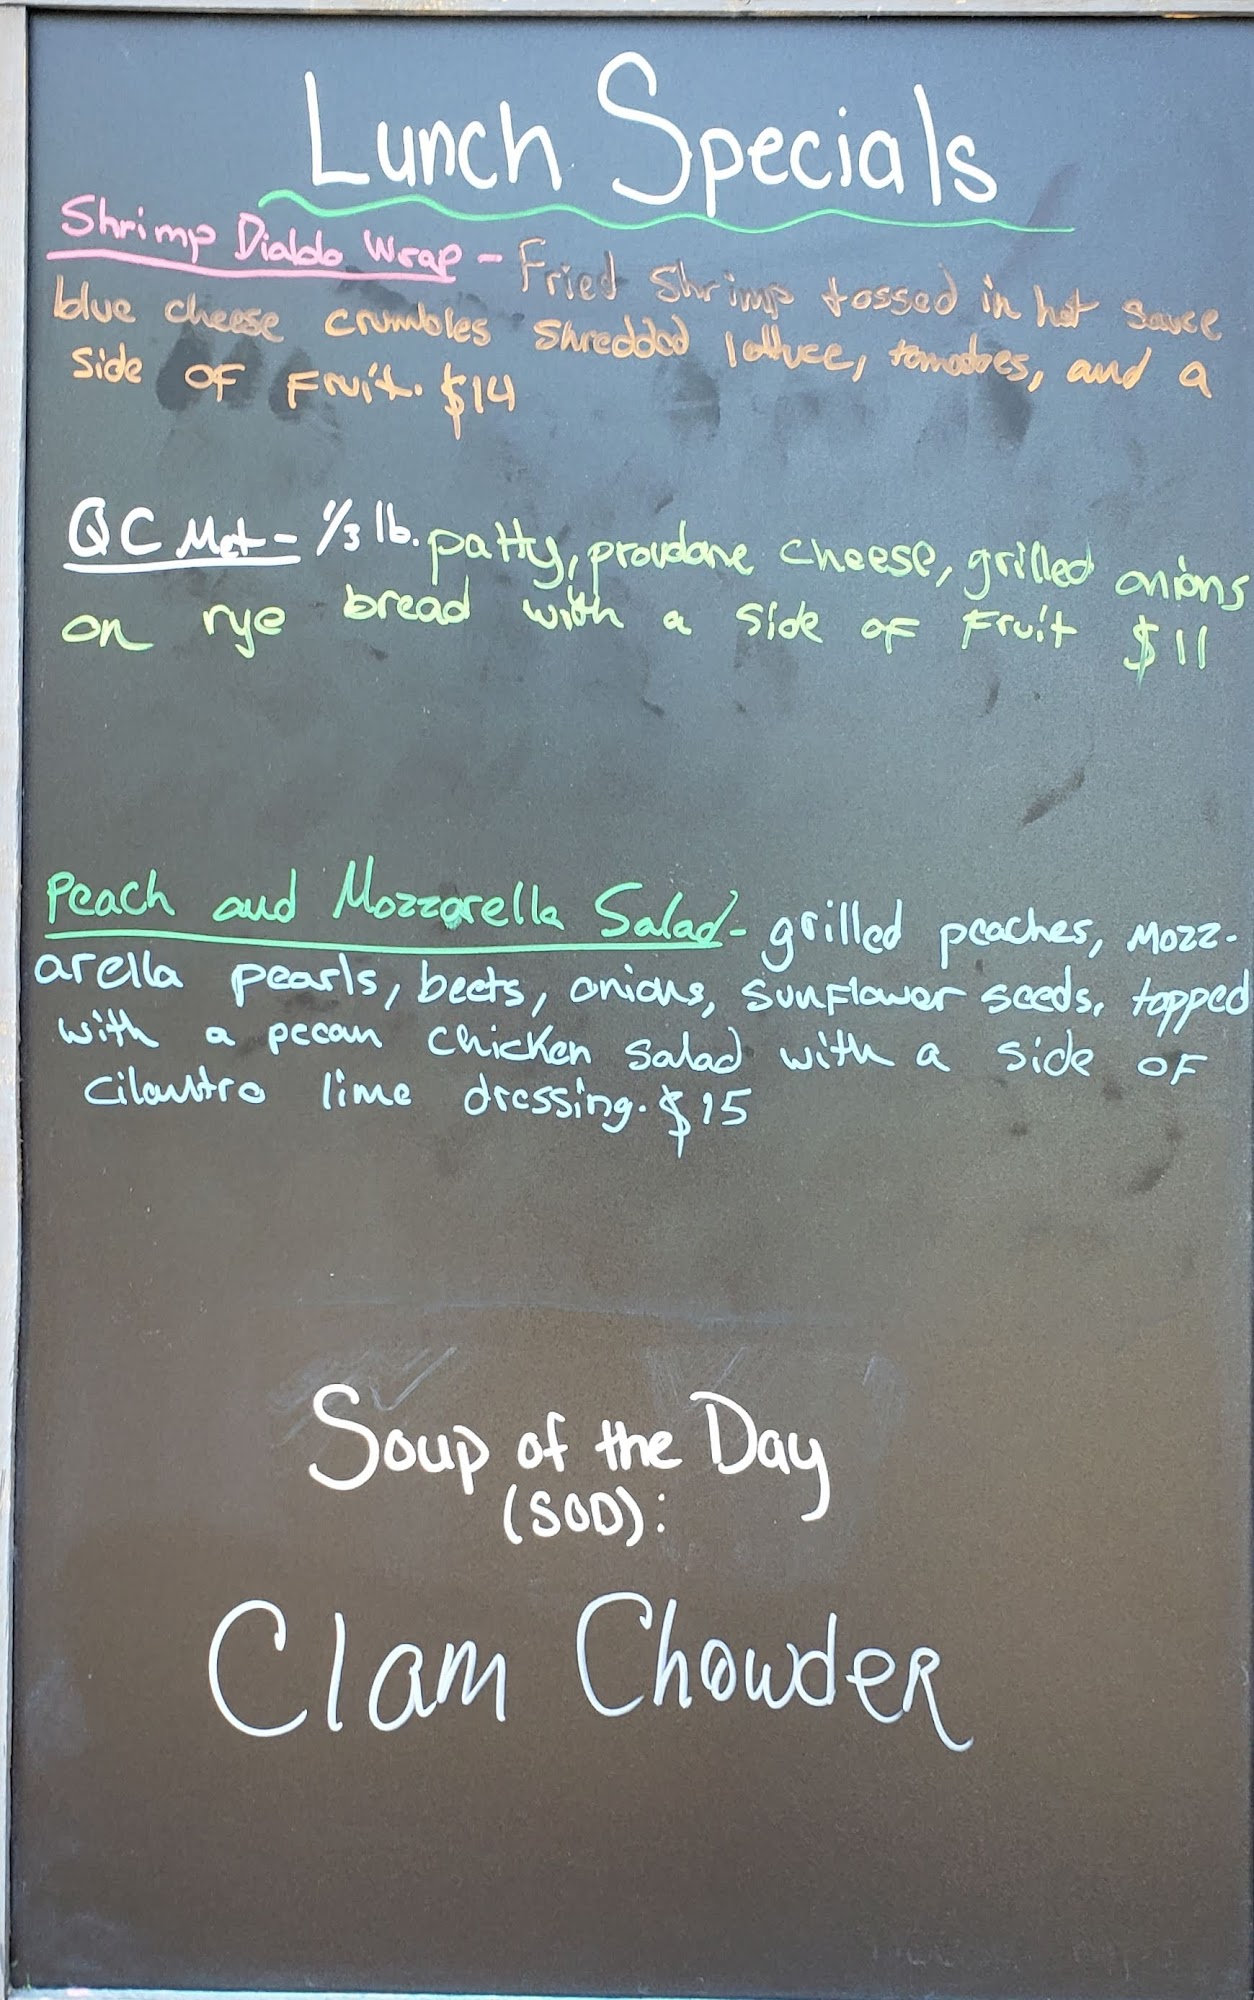 Lunch Specials
Shrimp Dialdo Wrap - Fried Shrimp tossed in hot sauce
blue cheese crumbles shredded lettuce, tomatoes, and a
side of fruit. $14
QC Melt - 1/3 lb. patty, provdone cheese, grilled onions
on rye bread with a side of fruit $11
Peach and Mozzarella Salad - grilled peaches, mozz-
arella pearls, beets, onions, sunflower seeds, topped
with a pecan chicken salad with a side of
cilantro lime dressing. $15
Soup of the Day
(SOD):
Clam Chowder